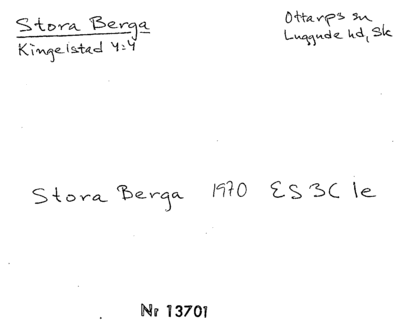 Stora Berga
Kingelstad 4:4
Ottarps sn
Luggude hd, Sk
Stora Berga 1970 ES 3C 1e
Nr 13701